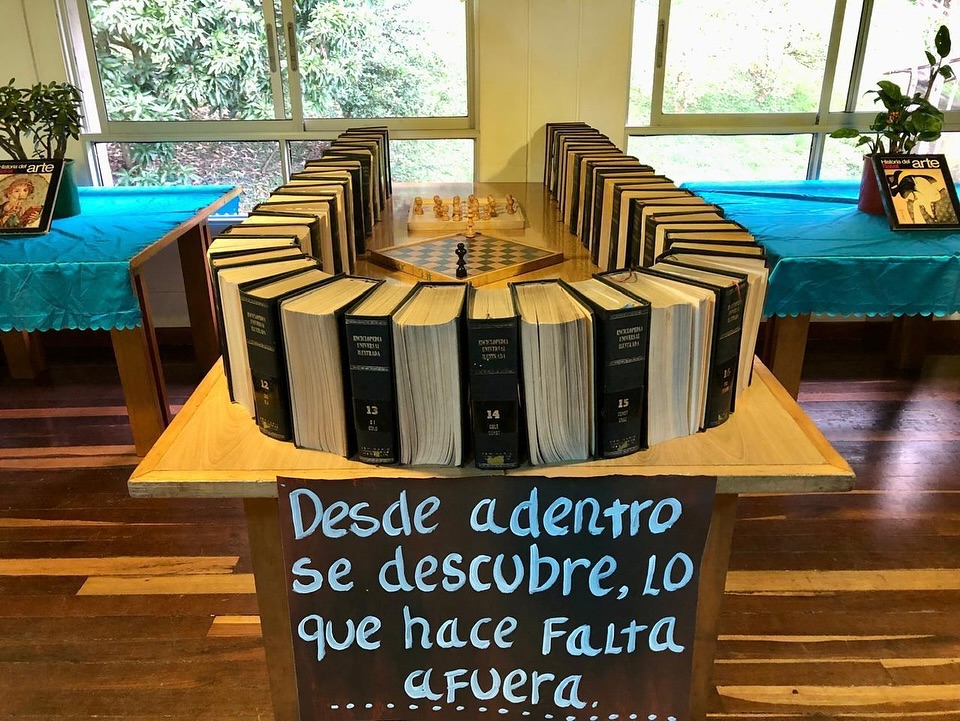 Historia del
arte
Historia del
arte
ENCICLOPEDIA
UNIVERSAL
ILUSTRADA
12
ENCICLOPEDIA
UNIVERSAL
ILUSTRADA
13
ENCICLOPEDIA
UNIVERSAL
ILUSTRADA
14
ENCICLOPEDIA
UNIVERSAL
ILUSTRADA
15
Desde adentro
se descubre, LO
que hace FALTA
aFUera.